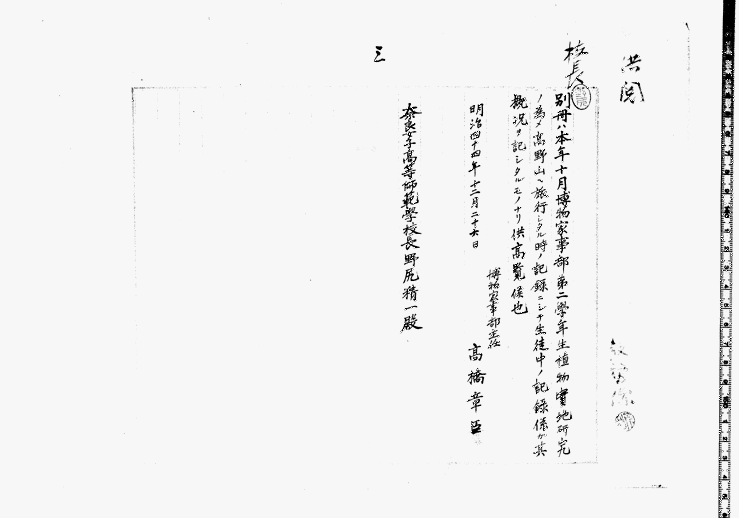 供閲
校長
別冊ハ本年十月博物家事部第二學年生植物實地研究
ノ為メ高野山ヘ旅行シタル時ノ記録ニシテ生徒中ノ記録係ガ其
概況ヲ記シタルモノナリ供高覽候也
明治四十四年十二月二十六日
博物家事部主任
高橋章臣
奈良女子高等師範學校長野尻精一殿
三